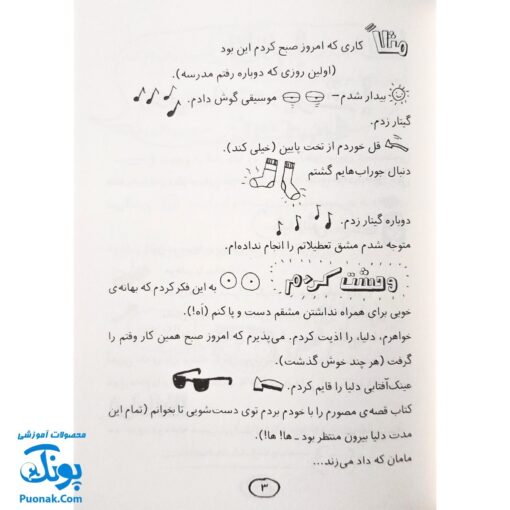 مثلاً کاری که امروز صبح کردم این بود
(اولین روزی که دوباره رفتم مدرسه).
بیدار شدم- موسیقی گوش دادم.
گیتار زدم.
قل خوردم از تخت پایین (خیلی کند).
دنبال جوراب‌هایم گشتم
دوباره گیتار زدم.
متوجه شدم مشق تعطیلاتم را انجام نداده‌ام.
وحشت کردم به این فکر کردم که بهانه‌ی
خوبی برای همراه نداشتن مشقم دست و پا کنم (اَه!).
خواهرم، دلیا، را اذیت کردم. می‌پذیرم که امروز صبح همین کار وقتم را
گرفت (هر چند خوش گذشت).
عینک‌آفتابی دلیا را قایم کردم.
کتاب قصه‌ی مصورم را با خودم بردم توی دست‌شویی تا بخوانم (تمام این
مدت دلیا بیرون منتظر بود ـ ها! ها!).
مامان که داد می‌زند...
۳
محصولات آموزشی
پونک
Puonak.Com